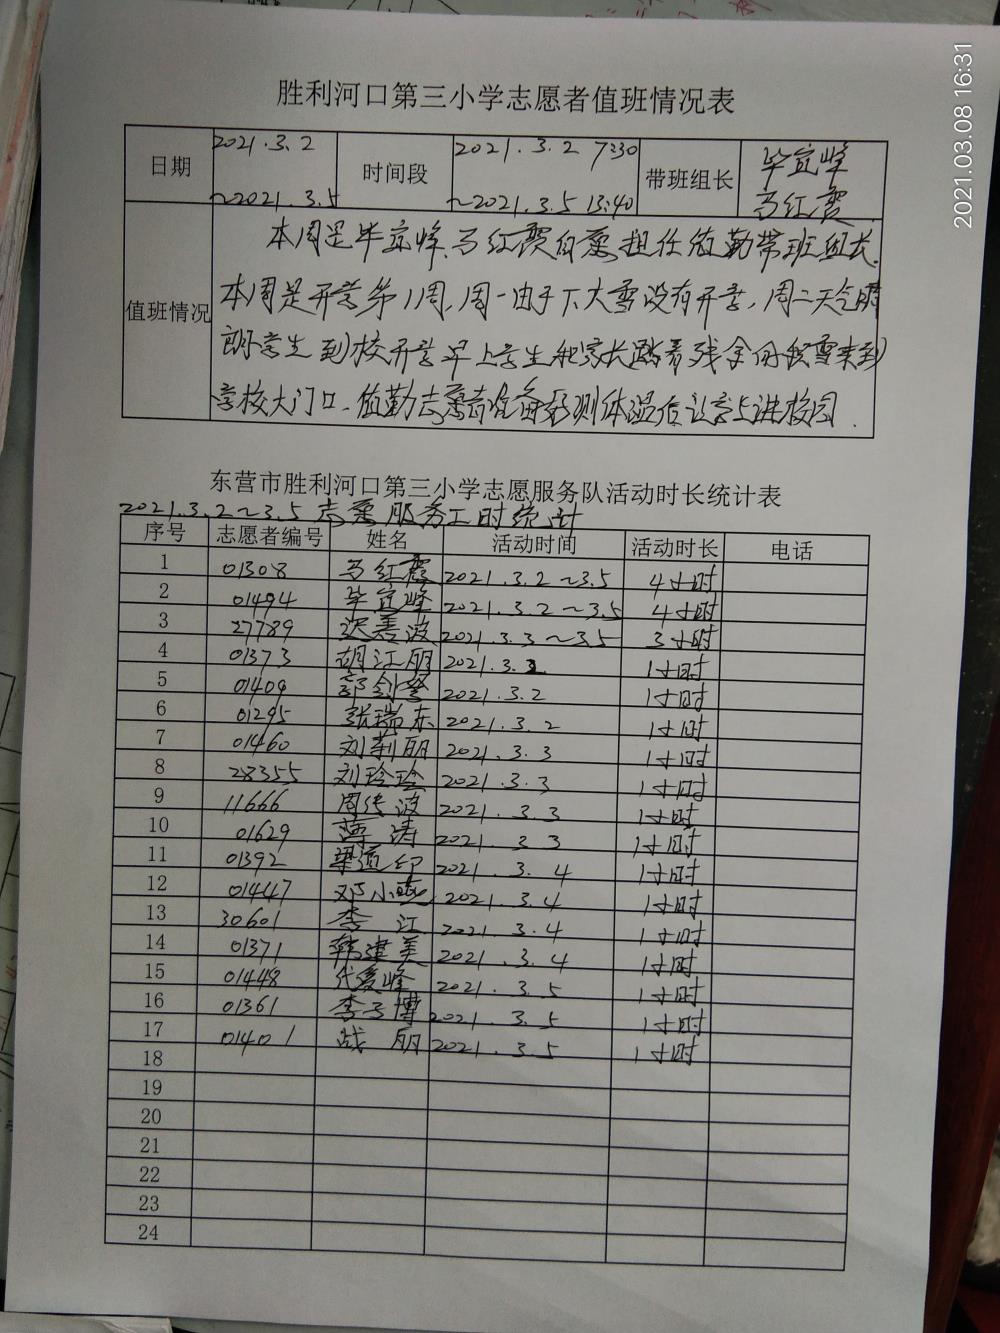 2021.03.08 16:31
胜利河口第三小学志愿者值班情况表
日期 2021.3.2 ~2021.3.5 时间段 2021.3.2 7:30 ~2021.3.5 13:40 带班组长 毕宜峰 马红霞
值班情况
本周是毕宜峰、马红霞自愿担任值勤带班组长.
本周是开学第1周,周一由于下大雪没有开学,周二天气晴
朗学生到校开学早上学生和家长踏着残余的积雪来到
学校大门口、值勤志愿者 测体温后让学生进校园.
东营市胜利河口第三小学志愿服务队活动时长统计表
2021.3.2~3.5志愿服务工时统计
序号 志愿者编号 姓名 活动时间 活动时长 电话
1 01308 马红霞 2021.3.2~3.5 4小时
2 01494 毕宜峰 2021.3.2~3.5 4小时
3 27789 迟善波 2021.3.3~3.5 3小时
4 01373 胡江丽 2021.3.2 1小时
5 01409 郭剑 2021.3.2 1小时
6 01295 张瑞东 2021.3.2 1小时
7 01460 刘莉丽 2021.3.3 1小时
8 28355 刘玲玲 2021.3.3 1小时
9 11666 周传波 2021.3.3 1小时
10 01629 薄涛 2021.3 3 1小时
11 01392 梁道印 2021.3.4 1小时
12 01447 邓小燕 2021.3.4 1小时
13 30601 李江 2021.3.4 1小时
14 01371 韩建美 2021.3.4 1小时
15 01448 代爱峰 2021.3.5 1小时
16 01361 李子博 2021.3.5 1小时
17 01401 战丽 2021.3.5 1小时
18
19
20
21
22
23
24